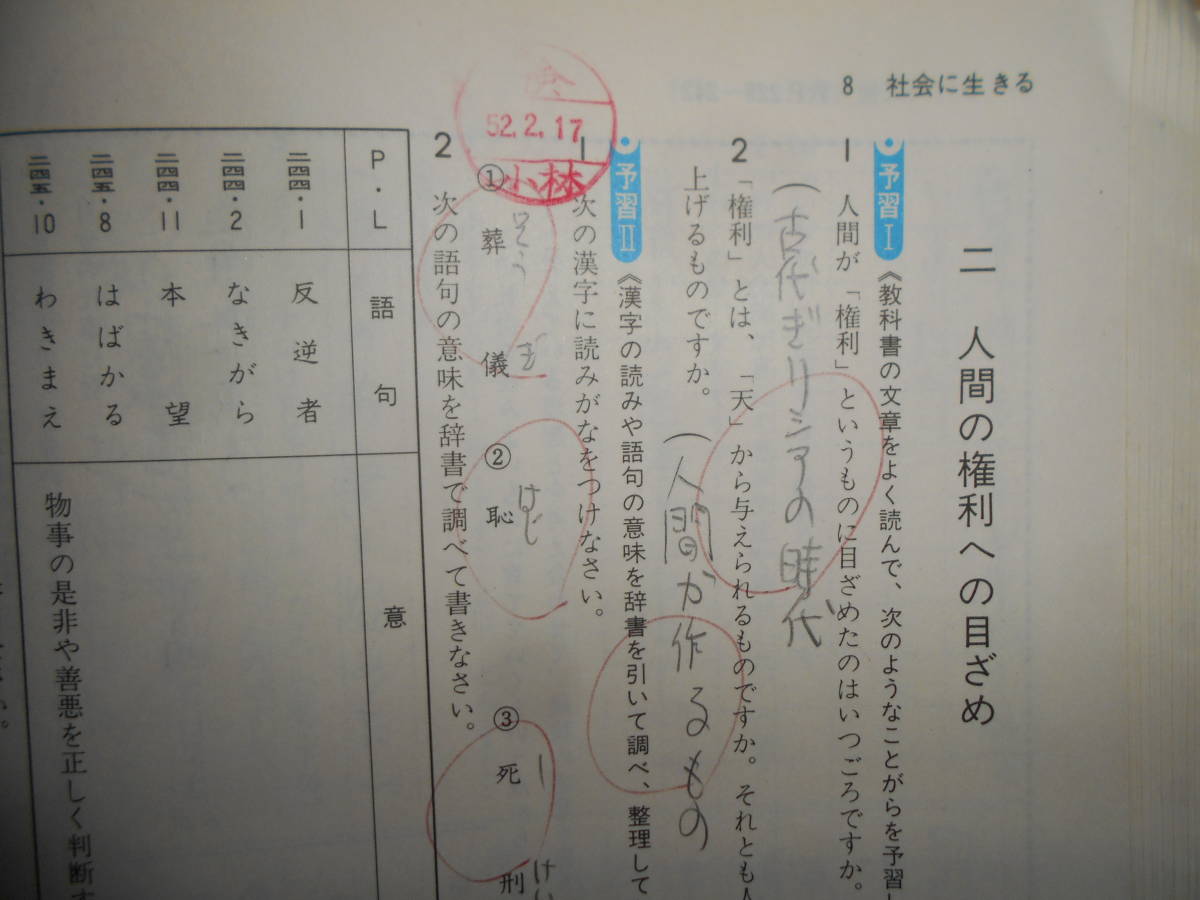 8 社会に生きる
二 人間の権利への目ざめ
予習Ⅰ《教科書の文章をよく読んで、次のようなことがらを予習し
1 人間が「権利」というものに目ざめたのはいつごろですか。
(古代ぎリシアの時代
2 「権利」とは、「天」から与えられるものですか。それとも人
上げるものですか。
(人間が作るもの
予習Ⅱ《漢字の読みや語句の意味を辞書を引いて調べ、整理して
1 次の漢字に読みがなをつけなさい。
① 葬儀 ② 恥 ③ 死刑
そう ぎ はじ し けい
52.2.17
小林
2 次の語句の意味を辞書で調べて書きなさい。
P・L 語句 意
二四四・1 反逆者
二四四・2 なきがら
二四四・11 本望
二四五・8 はばかる
二四五・10 わきまえ 物事の是非や善悪を正しく判断す